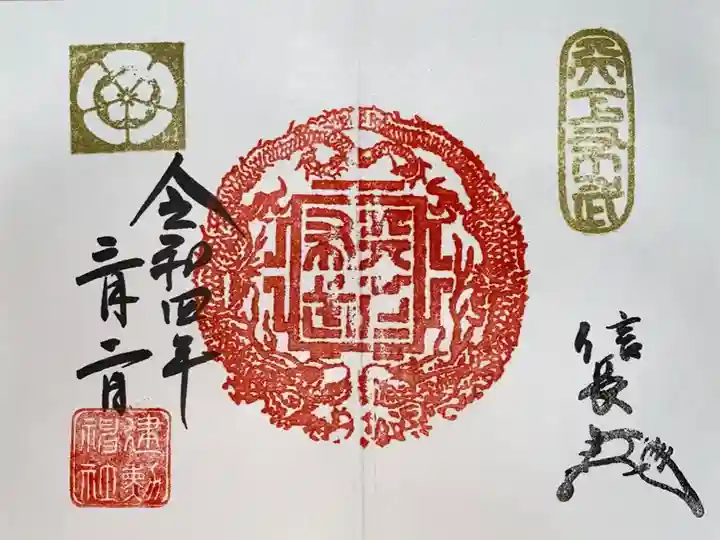 天下布武
信長
天下布武
令和四年
三月二日
建勲神社